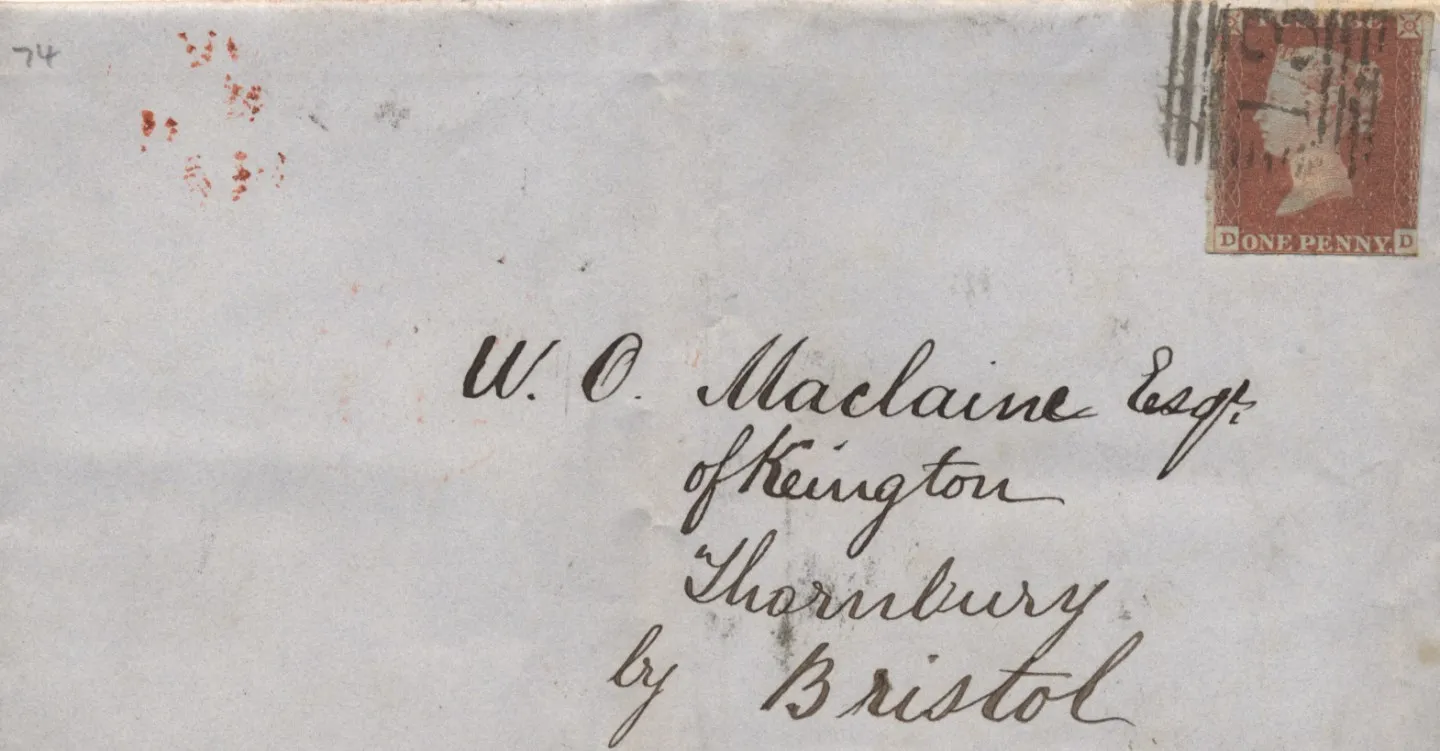 74
D ONE PENNY. D
W. O. Maclaine Esqr.
of Keington
Thornbury
by Bristol